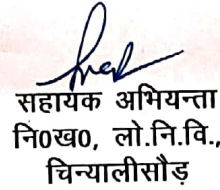 सहायक अभियन्ता
नि0ख0, लो.नि.वि.,
चिन्यालीसौड़